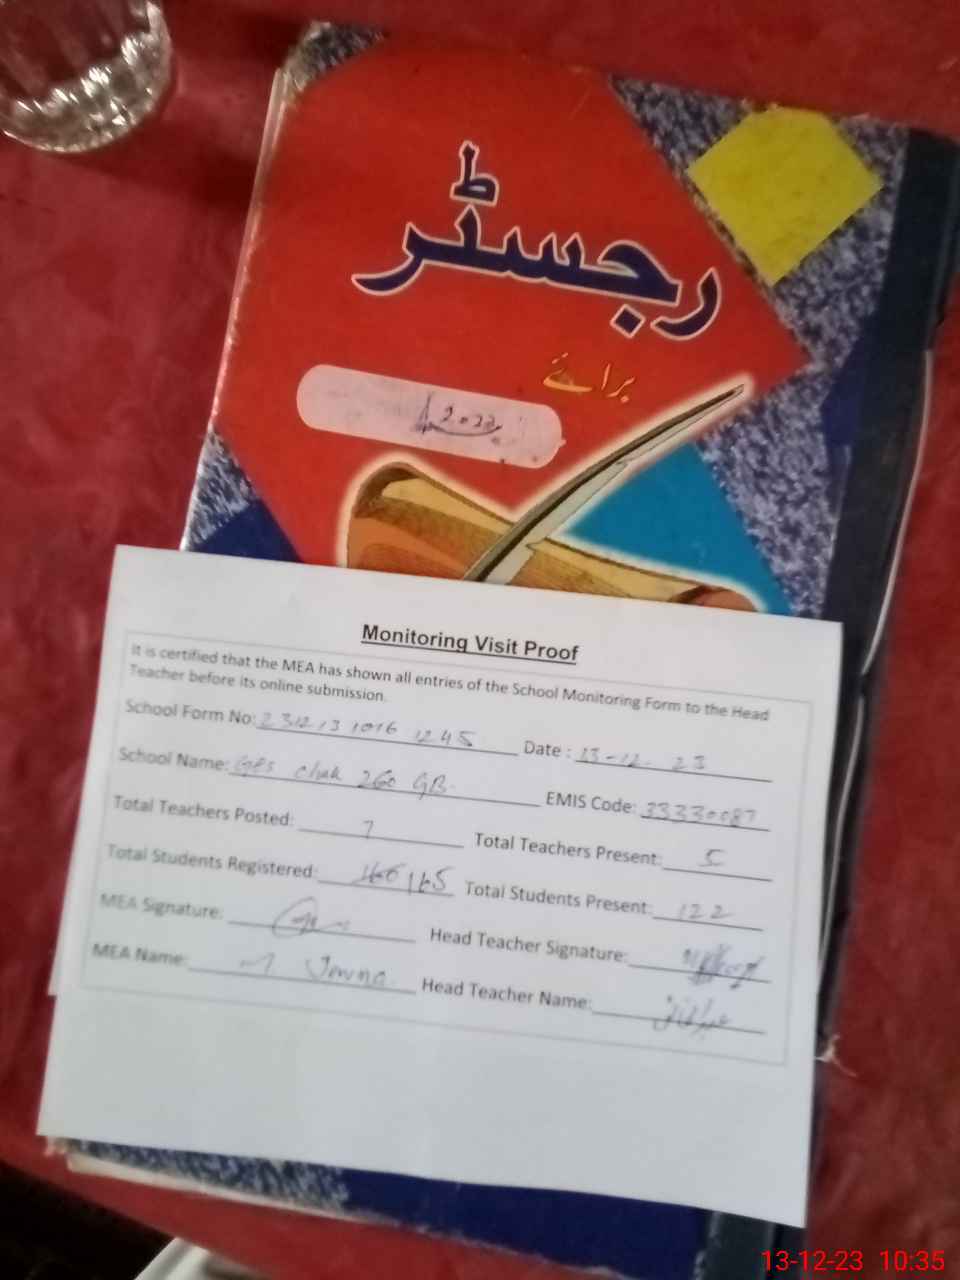 رجسٹر
برائے
2023
Monitoring Visit Proof
It is certified that the MEA has shown all entries of the School Monitoring Form to the Head
Teacher before its online submission.
School Form No: 23121310161245 Date : 13-12-23
School Name: GPS Chak 260 GB. EMIS Code: 33330087
Total Teachers Posted: 7 Total Teachers Present: 5
Total Students Registered: 165 Total Students Present: 122
MEA Signature: Head Teacher Signature:
MEA Name: M. Head Teacher Name:
13-12-23 10:35